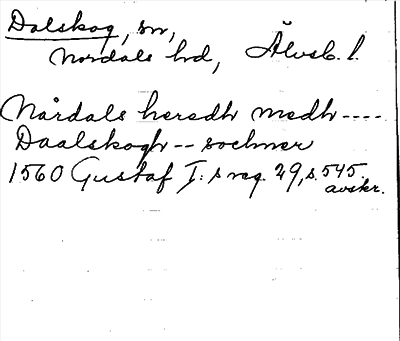 Dalskog, sn,
Nordals hd, Älvsb. l.
Nårdals heredh medh ----
Daalskogh -- sochner
1560 Gustaf I:s reg. 29, s. 545.
avskr.